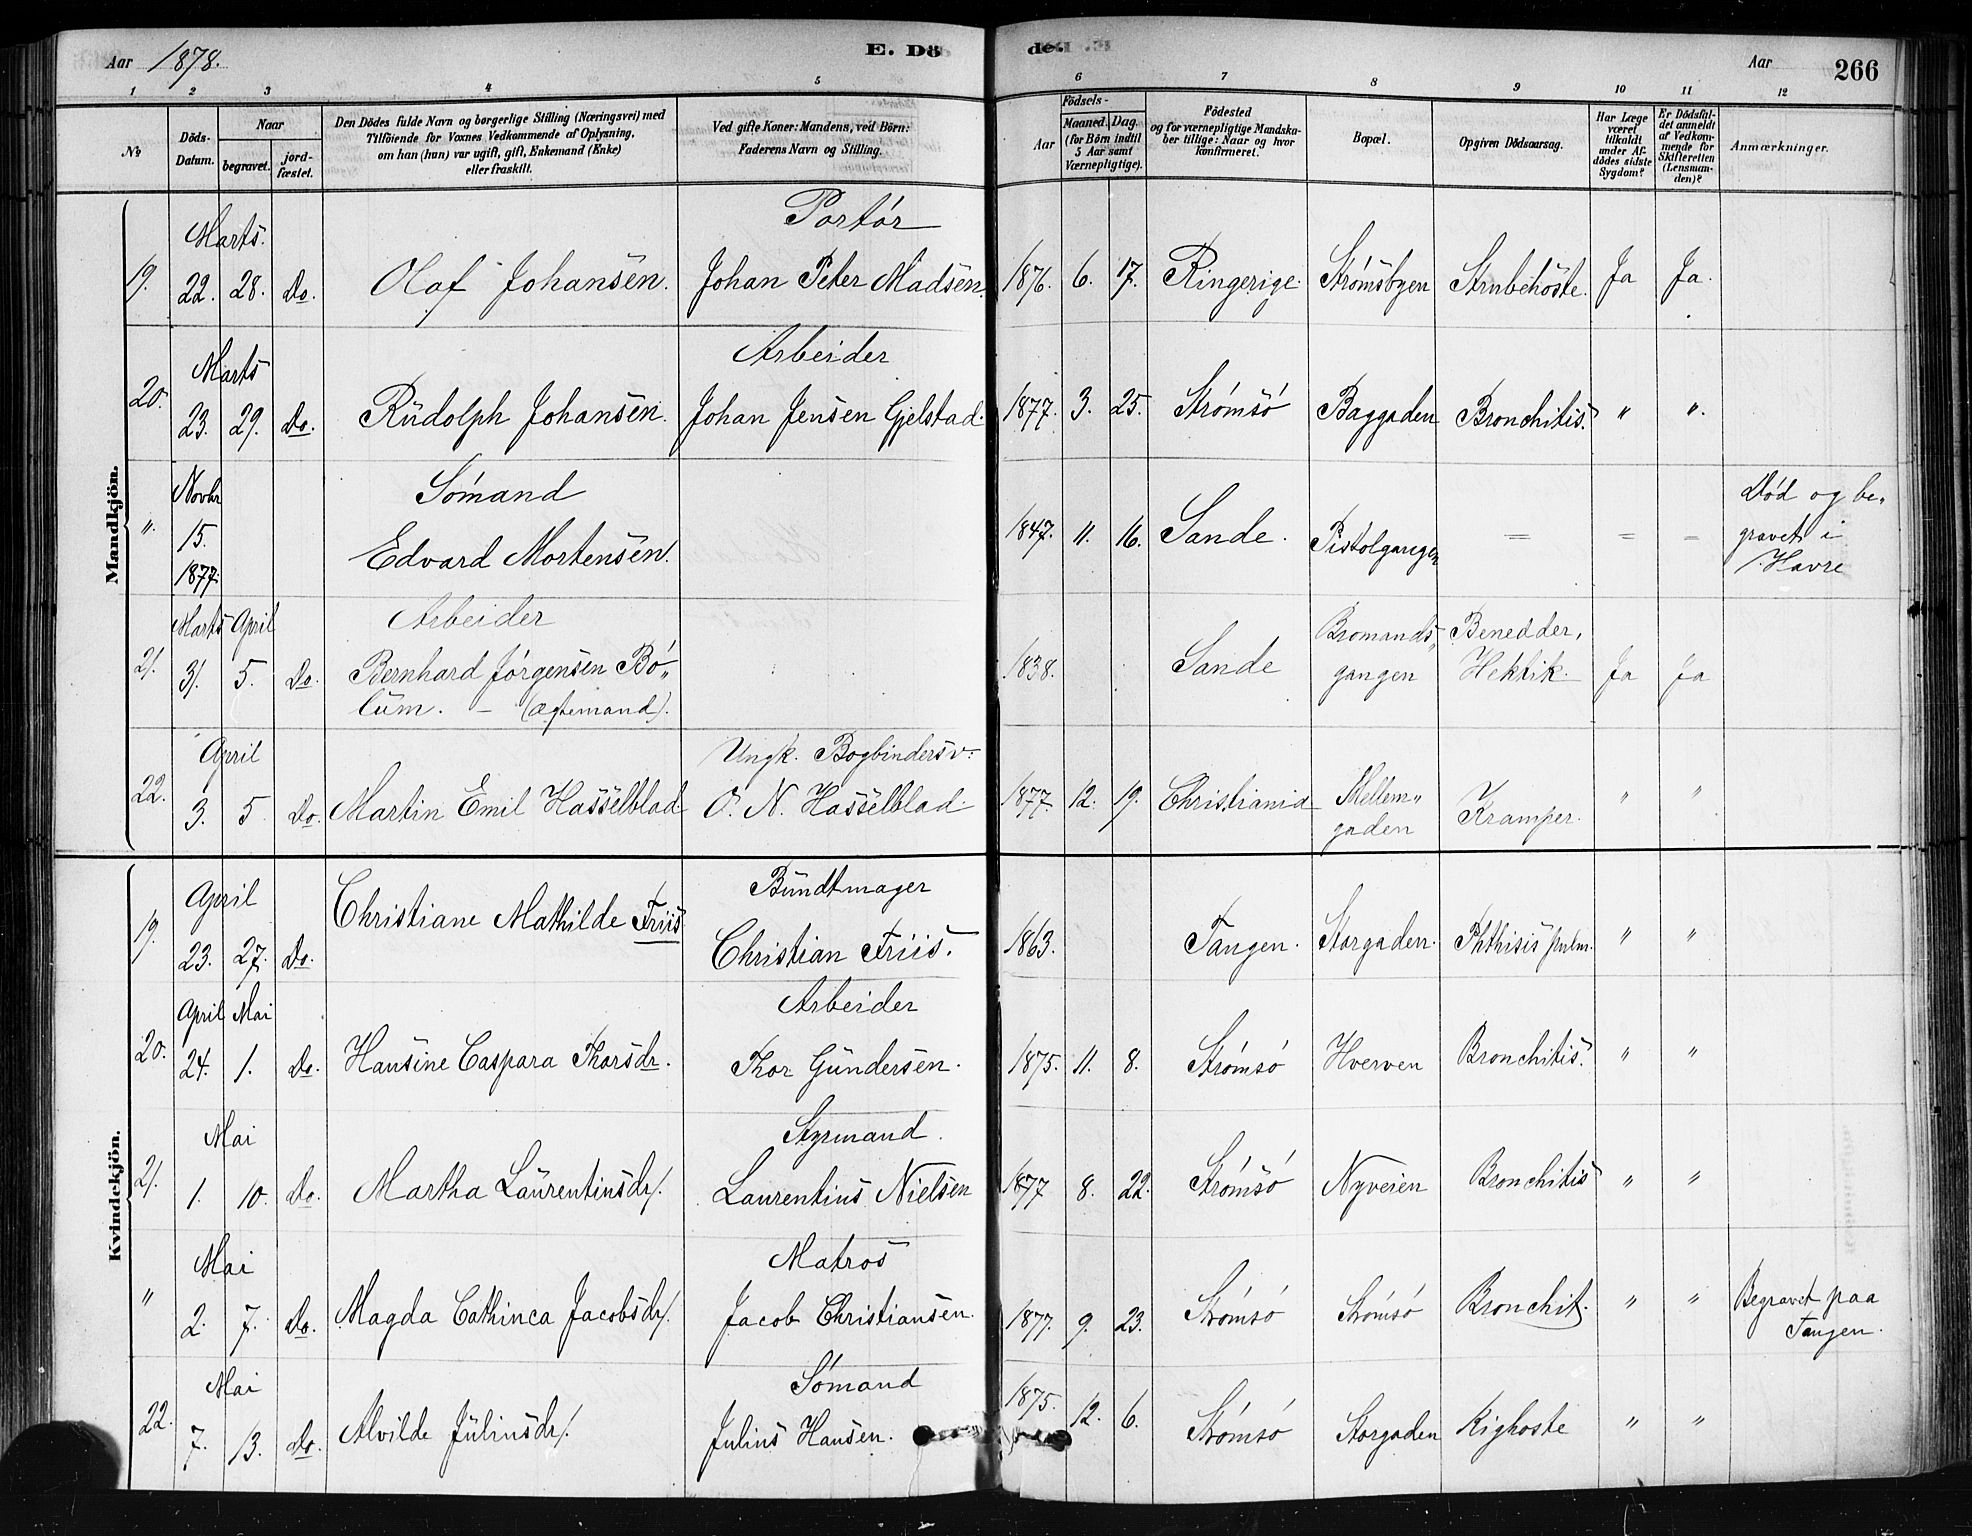 Aar 1878. E. Dö de. Aar 266
1 2 3 4 5 6 7 8 9 10 11 12
№
Döds-Datum.
Naar
begravet.
jord-fæstet.
Den Dödes fulde Navn og borgerlige Stilling (Næringsvei) med
Tilföiende for Voxnes Vedkommende af Oplysning,
om han (hun) var ugift, gift, Enkemand (Enke)
eller fraskilt.
Ved gifte Koner: Mandens, ved Börn:
Faderens Navn og Stilling.
Födsels-
Aar
Maaned. Dag.
(for Börn indtil
5 Aar samt
Værnepligtige).
Födested
og for værnepligtige Mandska-
ber tillige: Naar og hvor
konfirmeret.
Bopæl.
Opgiven Dödsaarsag.
Har Læge
været
tilkaldt
under Af-
dödes sidste
Sygdom?
Er Dödsfal-
det anmeldt
af Vedkom-
mende for
Skifteretten
(Lensman-
den)?
Anmærkninger.
Mandkjön.
Marts. Portör
19. 22. 28. Do. Olaf Johansen. Johan Peter Madsen. 1876. 6. 17. Ringerige. Strömsbyen Strubehoste. Ja Ja.
Marts Arbeider
20. 23. 29. Do. Rudolph Johansen. Johan Jensen Gjelstad. 1877. 3. 25. Strömsö Baggaden Bronchitis. " ".
Novbr Sömand Död og be-
" 15. Edvard Mortensen. 1847. 11. 16. Sande. Pistolgangen = = = gravet i
1877. Havre
Marts April Arbeider Bromands- Benedder,
21. 31. 5. Do. Bernhard Jörgensen Bö- 1838. Sande gangen Hektik. Ja Ja
lum. – (Ægtemand).
April Ungk. Bogbindersv. Mellem-
22. 3. 5 Do. Martin Emil Hasselblad O. N. Hasselblad. 1877. 12. 19. Christiania gaden Kramper. " "
Kvindekjön.
April Bundtmager
19. 23. 27. Do. Christiane Mathilde Friis Christian Friis. 1863. Tangen. Storgaden. Phthisis pulm. " "
April Mai Arbeider
20. 24. 1. Do. Hansine Caspara Thorsdr. Thor Gundersen. 1875. 11. 8. Strömsö Hverven Bronchitis. " "
Mai Styrmand.
21. 1. 10. Do. Martha Laurentiusdr. Laurentius Nielsen 1877 8. 22. Strömsö Nyveien Bronchitis " "
Mai Matros
" 2. 7. Do. Magda Cathinca Jacobsdr. Jacob Christiansen. 1877. 9. 23. Strömsö Strömsö Bronchit. " " Begravet paa
Tangen.
Mai Sömand
22. 7. 13. Do. Alvilde Juliusdr. Julius Hansen. 1875. 12. 6. Strömsö Storgaden Kighoste " "